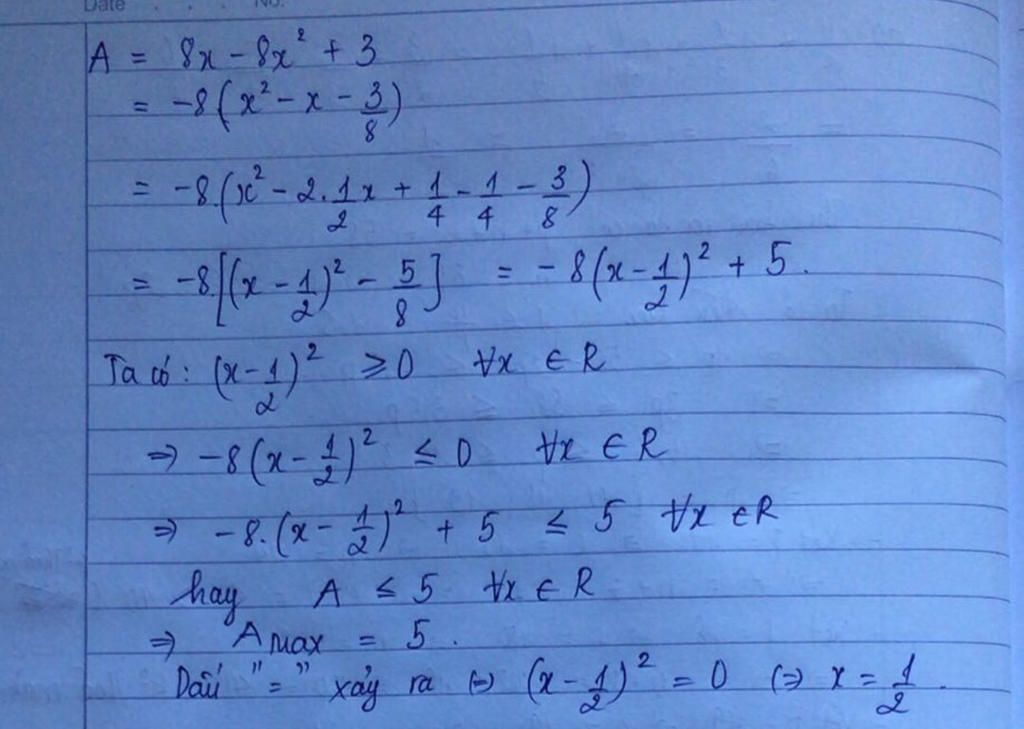 Date . . . No.
A = 8x - 8x² + 3
= -8(x² - x - 3/8)
= -8.(x² - 2.1/2x + 1/4 - 1/4 - 3/8)
= -8.[(x - 1/2)² - 5/8] = -8(x - 1/2)² + 5.
Ta có: (x - 1/2)² ≥ 0 ∀x ∈ R
⇒ -8(x - 1/2)² ≤ 0 ∀x ∈ R
⇒ -8.(x - 1/2)² + 5 ≤ 5 ∀x ∈ R
hay A ≤ 5 ∀x ∈ R
⇒ A max = 5.
Dấu "=" xảy ra ⇔ (x - 1/2)² = 0 ⇔ x = 1/2.